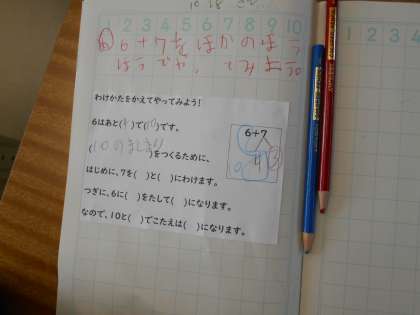 1 2 3 4 5 6 7 8 9 10
6+7をほかのほう
ほうでや、てみよう
わけかたをかえてやってみよう!
6はあと(4)で(10)です。
(10のまとまり)をつくるために、
はじめに、7を( )と( )にわけます。
つぎに、6に( )をたして( )になります。
なので、10と( )でこたえは( )になります。
6+7
10 4 3